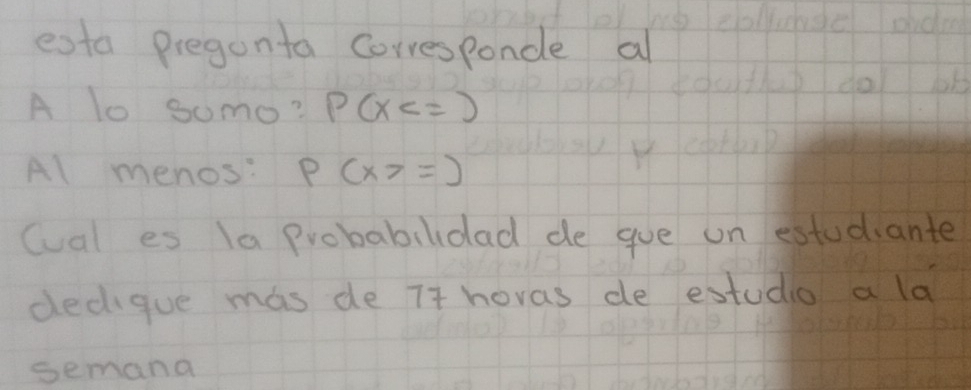 esta pregunta corresponde al
A lo sumo: P(x<=)
Al menos: P(x>=)
Cual es la probabilidad de que un estudiante
dedique más de 77 horas de estudio a la
semana